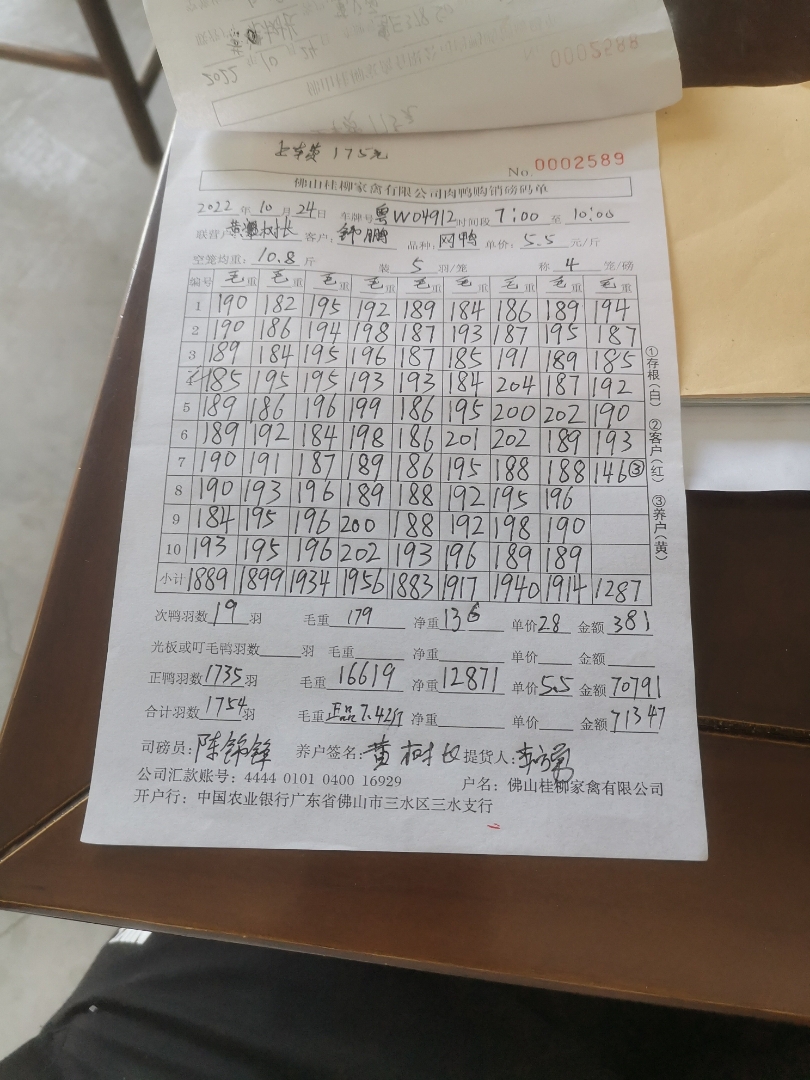 0002588
2022 10 24
上车费 175元
No. 0002589
佛山桂柳家禽有限公司肉鸭购销磅码单
2022 年 10 月 24 日 车牌号 粤W04912 时间段 7:00 至 10:00
联营户 黄树长 客户: 鹏 品种: 网鸭 单价: 5.5 元/斤
空笼均重: 10.8 斤 装 5 羽/笼 称 4 笼/磅
编号 毛重 毛重 毛重 毛重 毛重 毛重 毛重 毛重 毛重
1 190 182 195 192 189 184 186 189 194
2 190 186 194 198 187 193 187 195 187
3 189 184 195 196 187 185 191 189 185
4 185 195 195 193 193 184 204 187 192
5 189 186 196 199 186 195 200 202 190
6 189 192 184 198 186 201 202 189 193
7 190 191 187 189 186 195 188 188 146③
8 190 193 196 189 188 192 195 196
9 184 195 196 200 188 192 198 190
10 193 195 196 202 193 196 189 189
小计 1889 1899 1934 1956 1883 1917 1940 1914 1287
次鸭羽数 19 羽 毛重 179 净重 136 单价 28 金额 381
光板或叮毛鸭羽数 羽 毛重 净重 单价 金额
正鸭羽数 1735 羽 毛重 16619 净重 12871 单价 5.5 金额 70791
合计羽数 1754 羽 毛重 正品7.42斤 净重 单价 金额 71347
司磅员: 陈锦锋 养户签名: 黄树长 提货人:
公司汇款账号: 4444 0101 0400 16929 户名: 佛山桂柳家禽有限公司
开户行: 中国农业银行广东省佛山市三水区三水支行
①存根(白) ②客户(红) ③养户(黄)